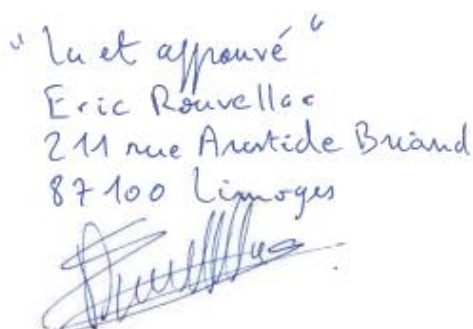 "lu et approuvé"
Eric Rouvellac
211 rue Aristide Briand
87100 Limoges